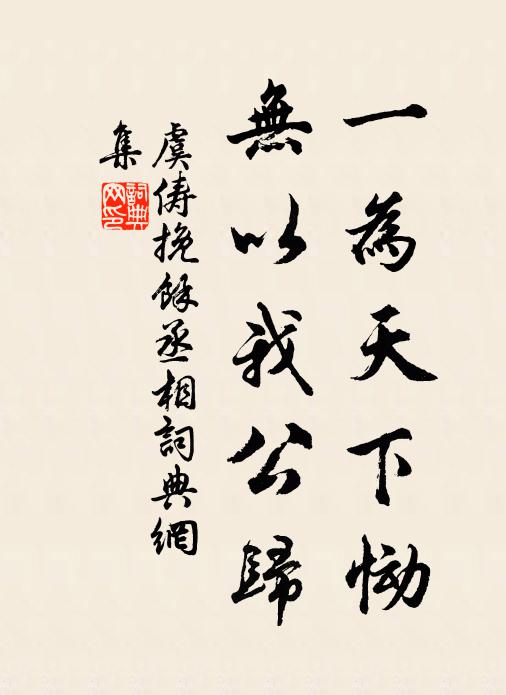 一為天下慟
無以我公歸
虞儔挽餘丞相詞典網
集
詞典
网印